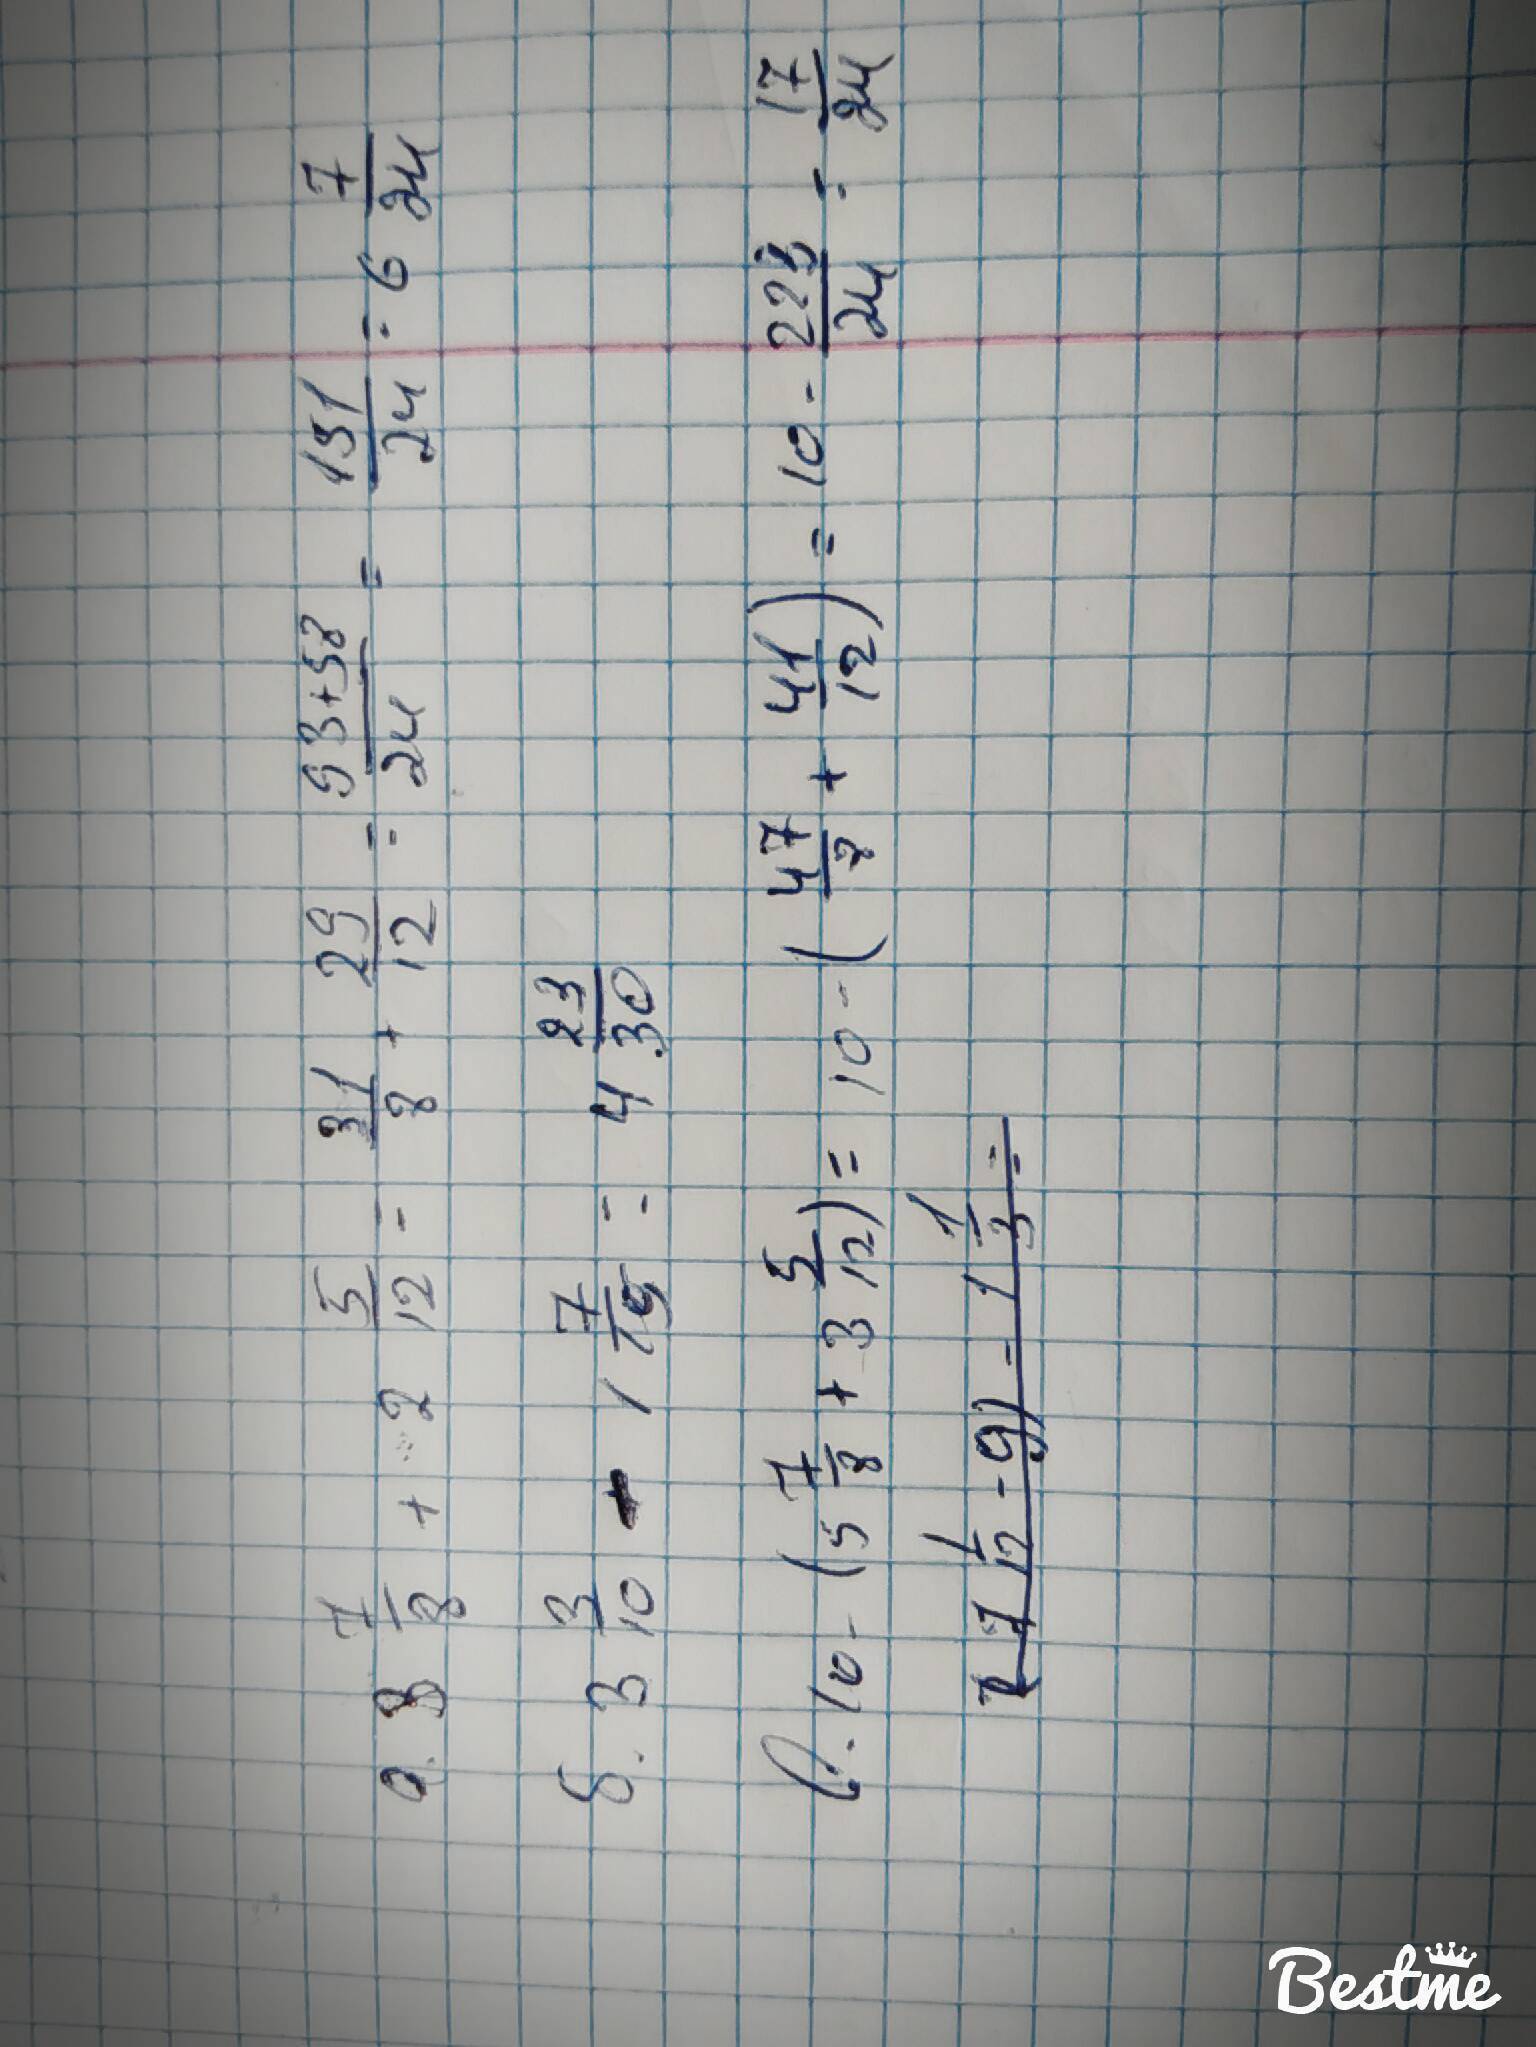 а. 3 7/8 + 2 5/12 = 31/8 + 29/12 = 93+58/24 = 151/24 = 6 7/24
б. 3 3/10 + 1 7/15 = 4 23/30
в. 10 - (5 7/8 + 3 5/12) = 10 - (47/8 + 41/12) = 10 - 223/24 = 17/24
1/12 - 9) - 1 1/3 =
Bestme